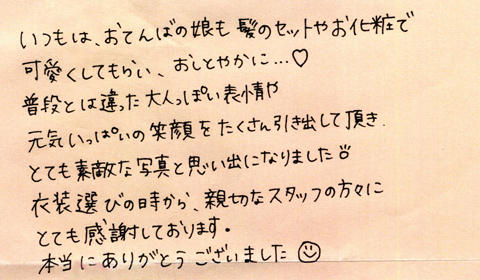 いつもは、おてんばの娘も髪のセットやお化粧で
可愛くしてもらい、おしとやかに…♡
普段とは違った大人っぽい表情や
元気いっぱいの笑顔をたくさん引き出して頂き
とても素敵な写真と思い出になりました
衣装選びの時から、親切なスタッフの方々に
とても感謝しております。
本当にありがとうございました☺